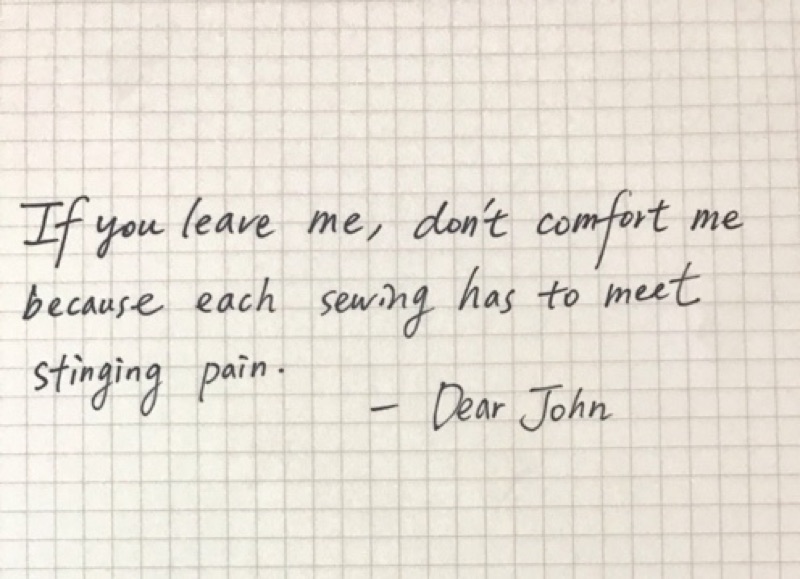 If you leave me, don't comfort me
because each sewing has to meet
stinging pain.
– Dear John